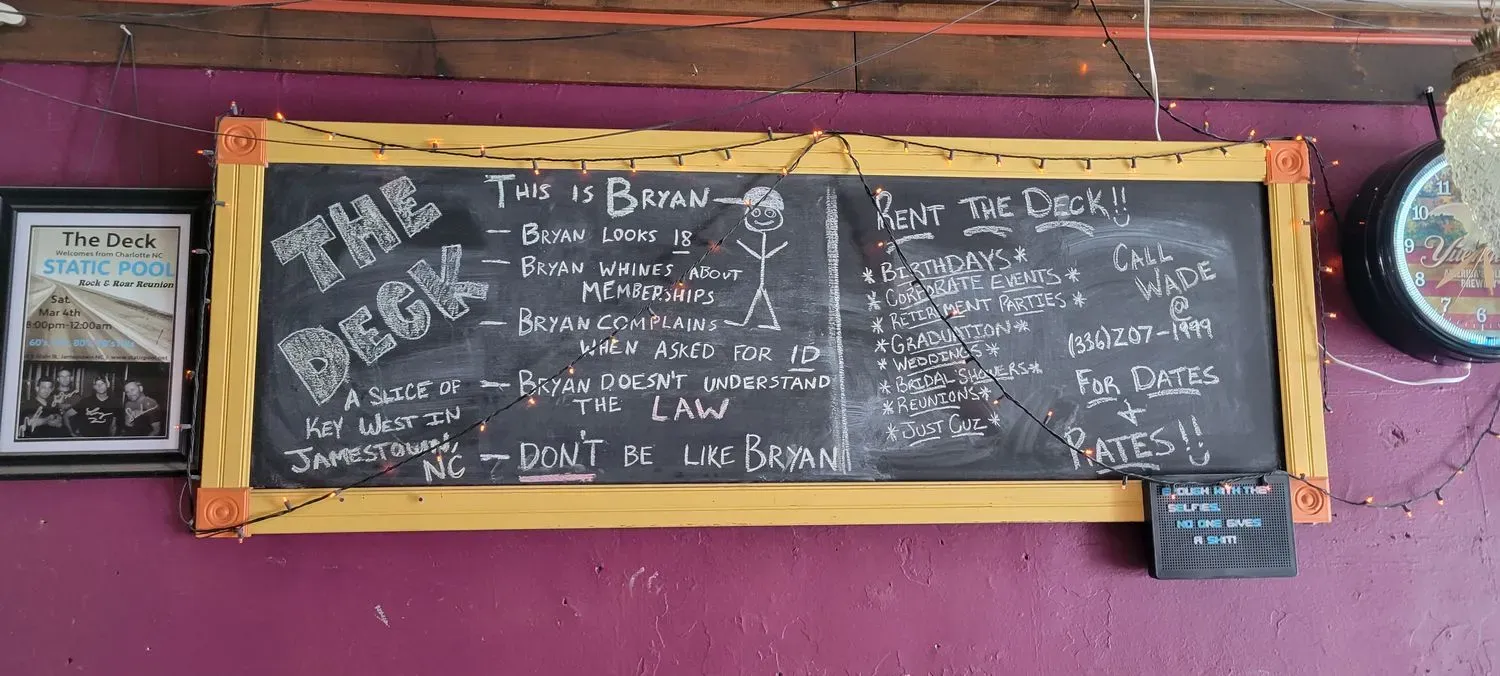 The Deck
Welcomes from Charlotte NC
STATIC POOL
Rock & Roar Reunion
Sat.
Mar 4th
8:00pm-12:00am
THE
DECK
A SLICE OF
KEY WEST IN
JAMESTOWN,
NC
THIS IS BRYAN
- BRYAN LOOKS 18
- BRYAN WHINES ABOUT
MEMBERSHIPS
- BRYAN COMPLAINS
WHEN ASKED FOR ID
- BRYAN DOESN'T UNDERSTAND
THE LAW
- DON'T BE LIKE BRYAN
RENT THE DECK!!
*BIRTHDAYS*
*CORPORATE EVENTS*
*RETIREMENT PARTIES*
*GRADUATION*
*WEDDINGS*
*BRIDAL SHOWERS*
*REUNIONS*
*JUST CUZ*
CALL
WADE
@
(336)207-1999
FOR DATES
+
RATES!!
ENOUGH WITH THE
SELFIES.
NO ONE GIVES
A SHIT!
11
10
9
8
6